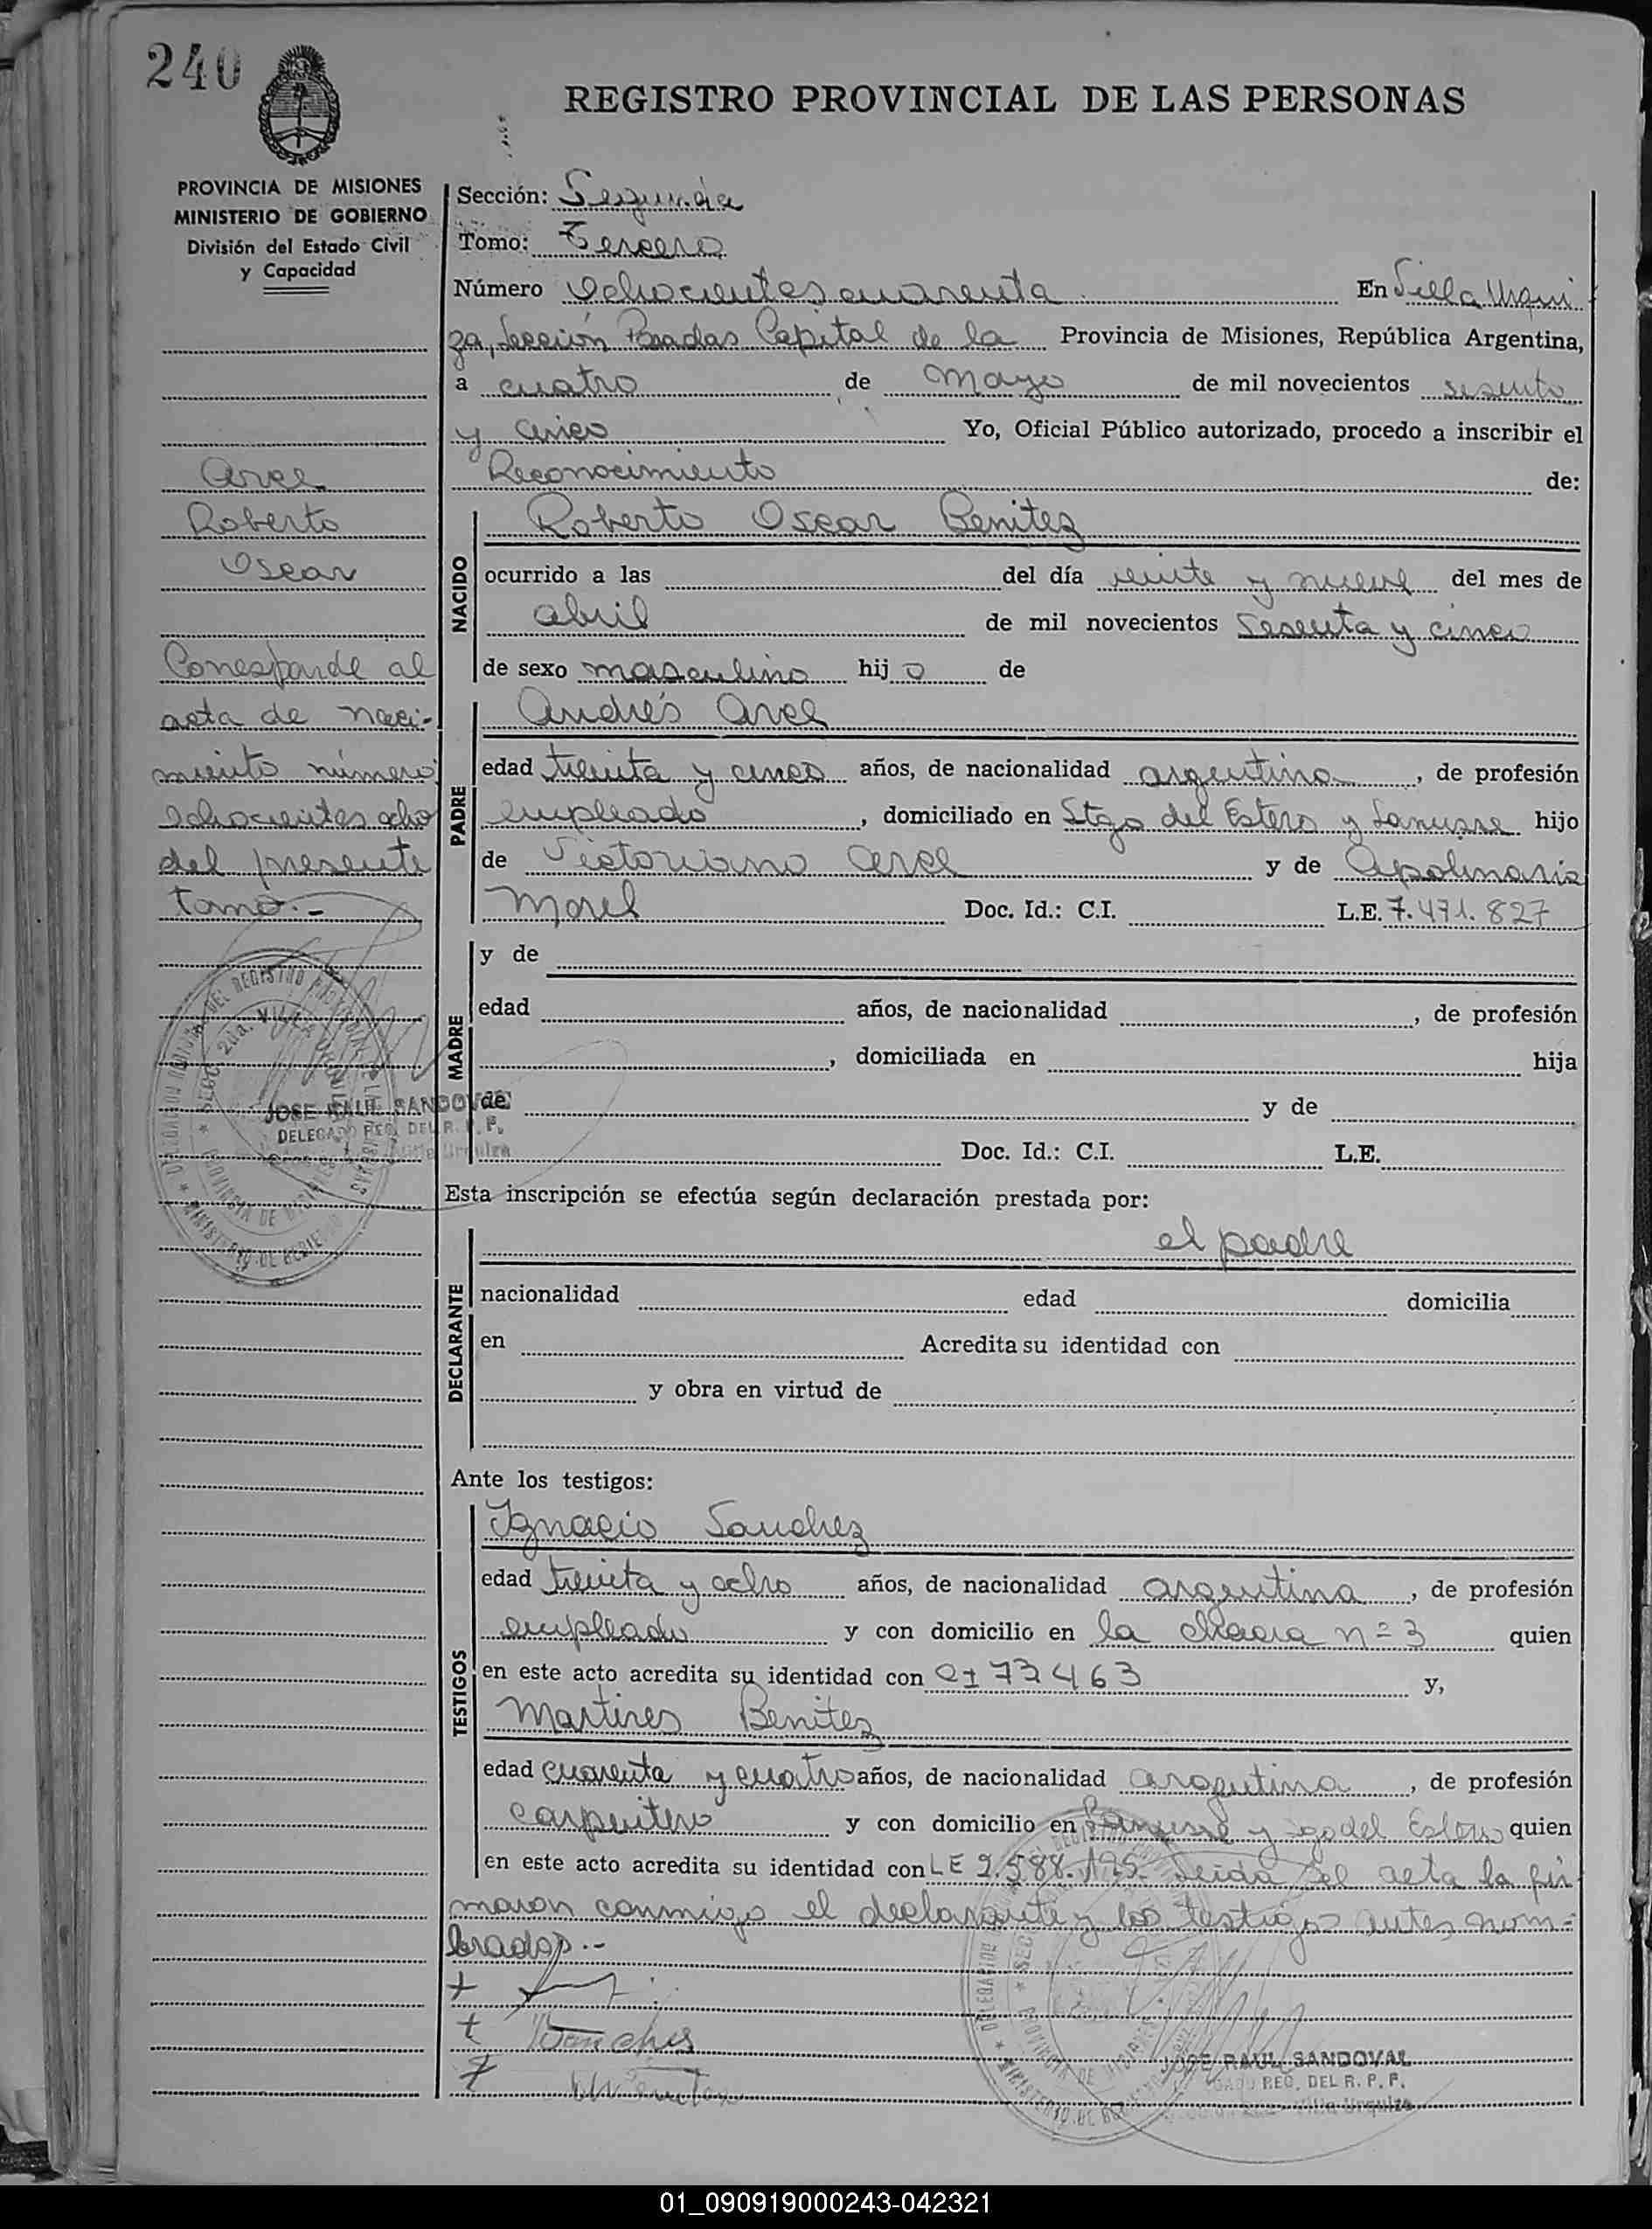 240
REGISTRO PROVINCIAL DE LAS PERSONAS
PROVINCIA DE MISIONES
MINISTERIO DE GOBIERNO
División del Estado Civil
y Capacidad
Sección: Segunda
Tomo: Tercero
Número Ochocientos cuarenta En Villa Urqui
za, Sección Posadas Capital de la Provincia de Misiones, República Argentina,
a cuatro de Mayo de mil novecientos sesenta
y cinco Yo, Oficial Público autorizado, procedo a inscribir el
Reconocimiento de:
Arce
Roberto
Oscar
Corresponde al
acta de naci-
miento número
ochocientos ocho
del presente
tomo.-
NACIDO
Roberto Oscar Benitez
ocurrido a las del día veinte y nueve del mes de
abril de mil novecientos sesenta y cinco
de sexo masculino hijo de
PADRE
Andrés Arce
edad treinta y cinco años, de nacionalidad argentina, de profesión
empleado, domiciliado en Stgo del Estero y Lanusse hijo
de Victoriano Arce y de Apolinaria
Morel Doc. Id.: C.I. L.E. 7.471.827
MADRE
y de
edad años, de nacionalidad , de profesión
, domiciliada en hija
de y de
Doc. Id.: C.I. L.E.
JOSE RAUL SANDOVAL
DELEGADO REG. DEL R. P. P.
Villa Urquiza
Esta inscripción se efectúa según declaración prestada por:
DECLARANTE
el padre
nacionalidad edad domicilia
en Acredita su identidad con
y obra en virtud de
Ante los testigos:
TESTIGOS
Ignacio Sanchez
edad treinta y ocho años, de nacionalidad argentina, de profesión
empleado y con domicilio en la chacra n= 3 quien
en este acto acredita su identidad con CI 73463 y,
Martires Benitez
edad cuarenta y cuatro años, de nacionalidad argentina, de profesión
carpintero y con domicilio en Lanusse y go del Estero quien
en este acto acredita su identidad con LE 2.588.195. Leida el acta la fir
maron conmigo el declarante y los testigos antes nom=
brados.-
JOSE RAUL SANDOVAL
REG. DEL R. P. P.
Villa Urquiza
01_090919000243-042321